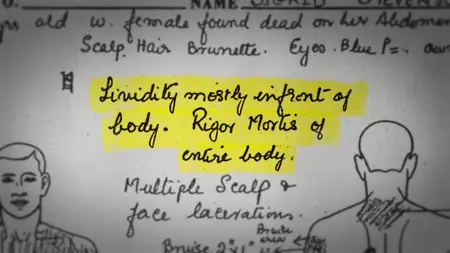 NAME
old w. female found dead on her Abdomen
Scalp Hair Brunette. Eyes. Blue P=
Lividity mostly infront of
body. Rigor Mortis of
entire body.
Multiple Scalp &
face lacerations.
Bruise
area
Bruise 2"x1"